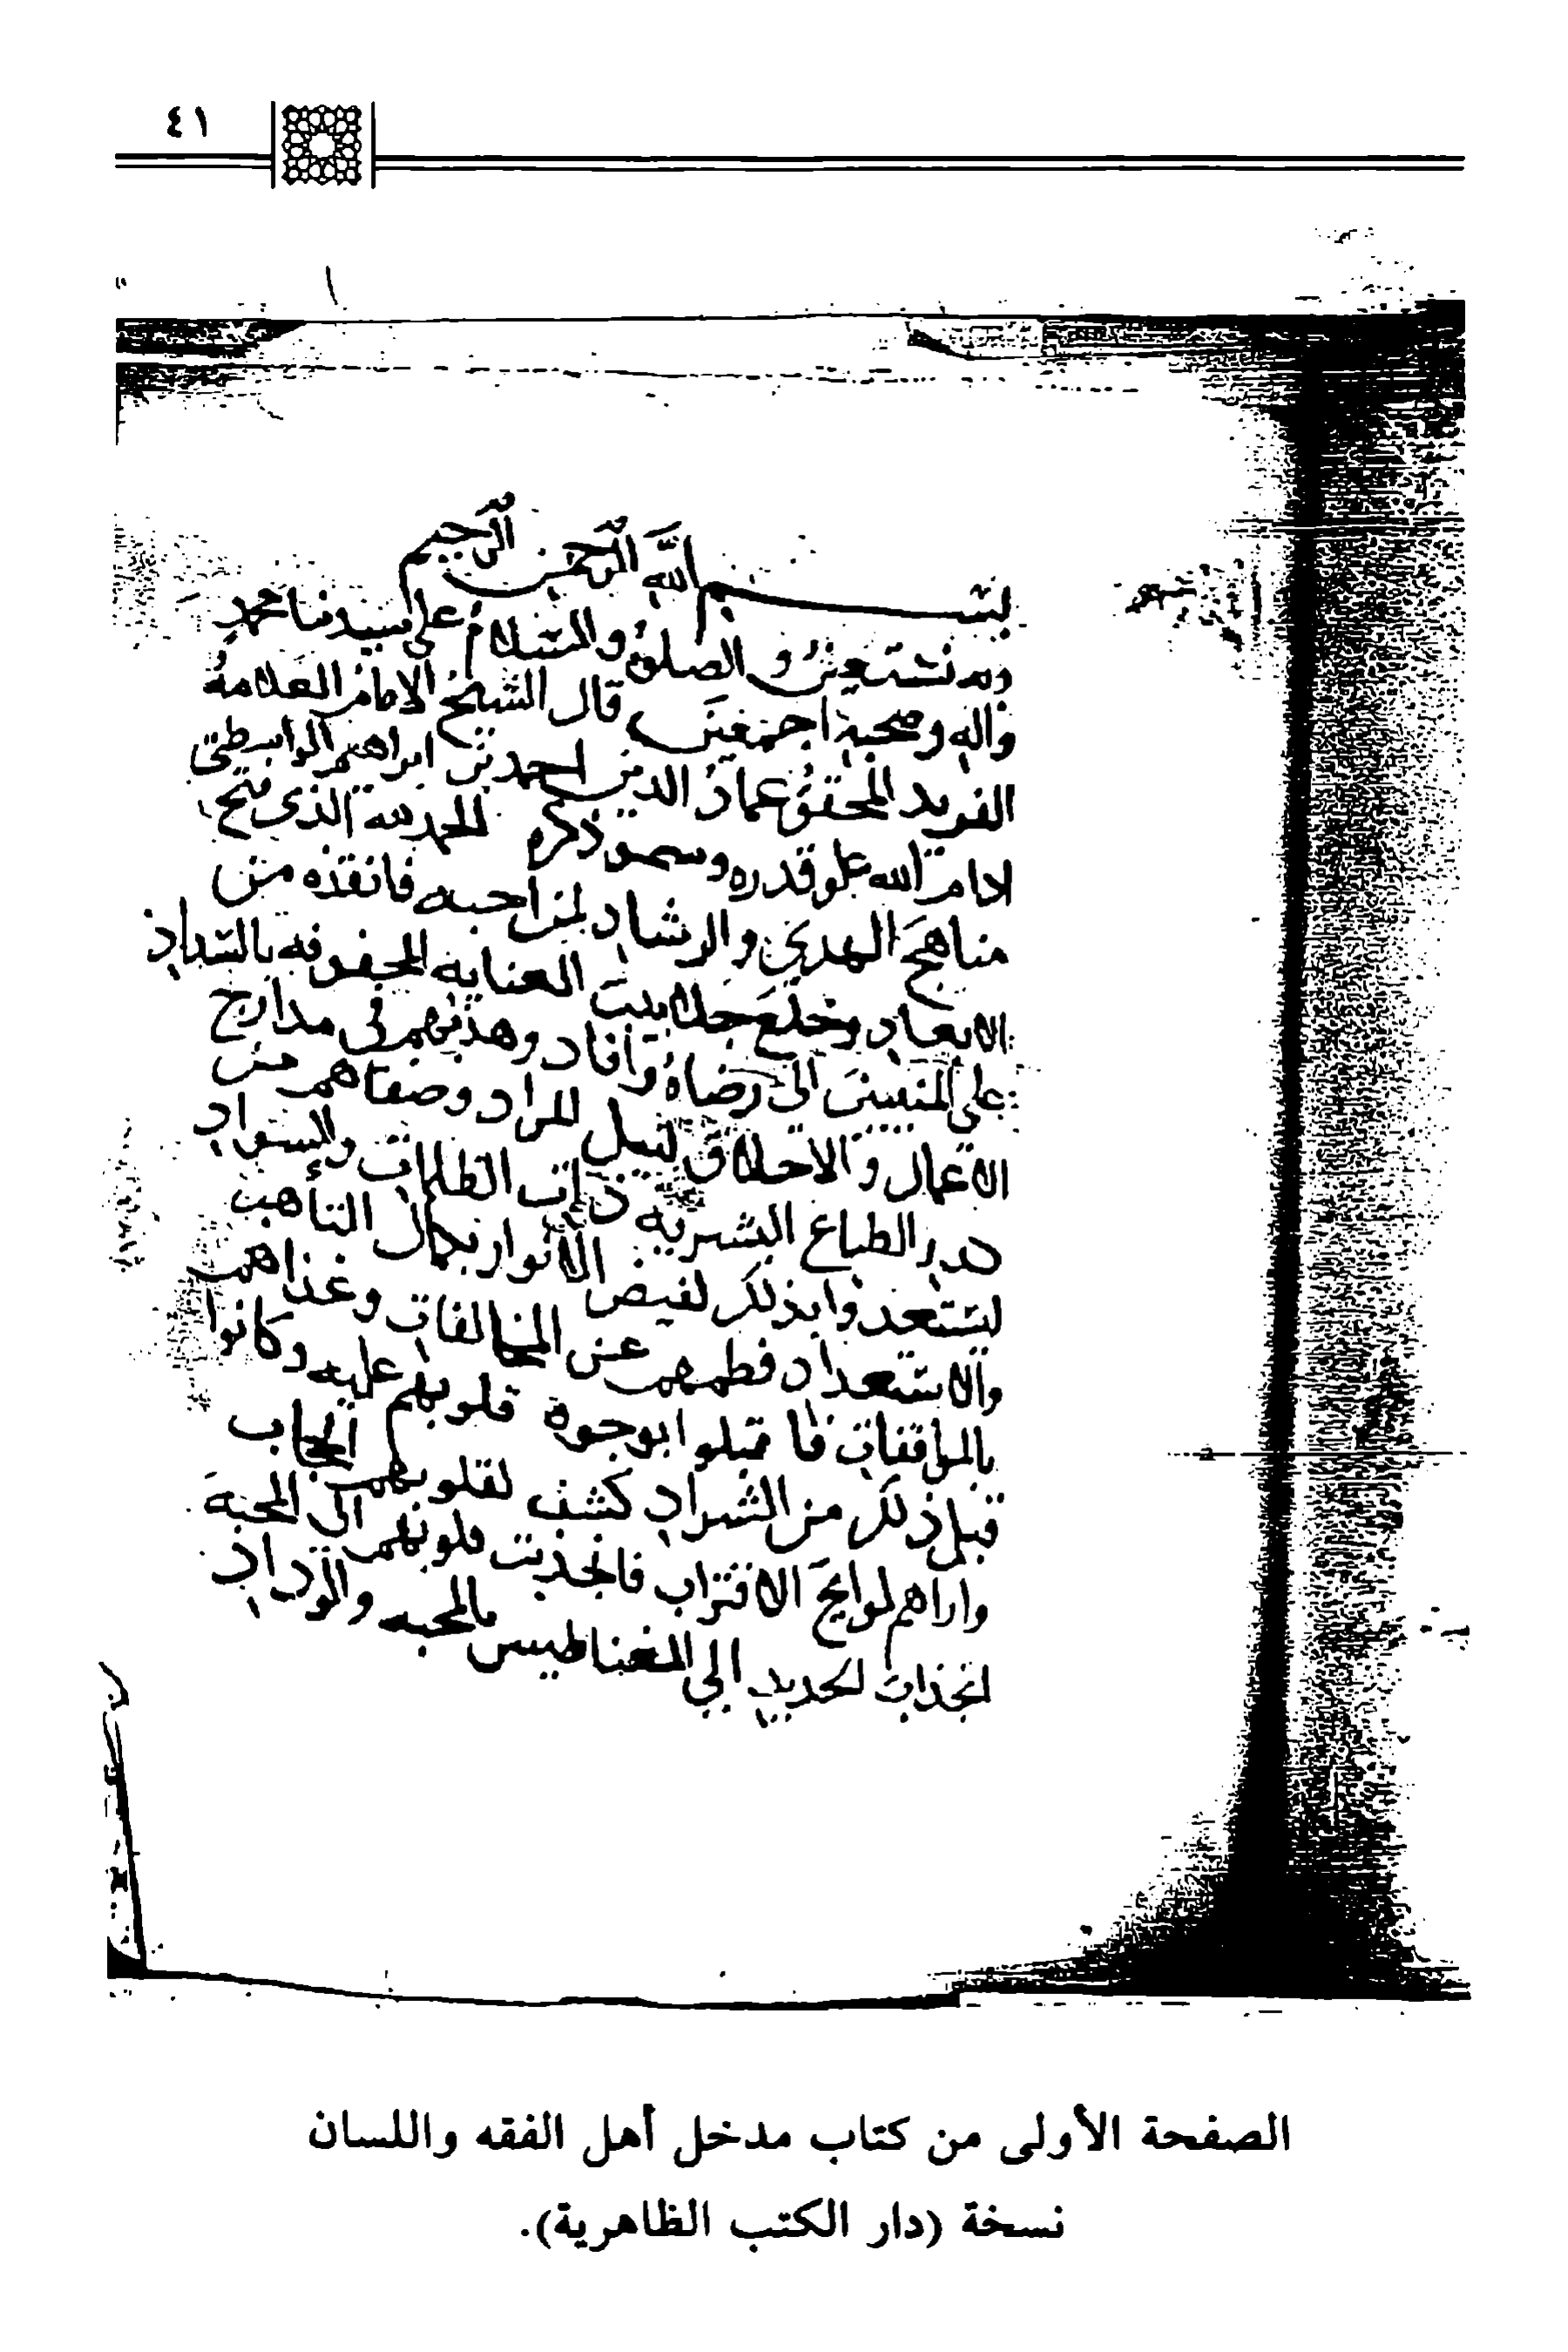 ٤١
بسم الله الرحمن الرحيم
وبه نستعين والصلوة والسلام على سيدنا محمد
واله وصحبه اجمعين قال الشيخ الامام العلامة
الفريد المحقق عماد الدين احمد بن ابراهيم الواسطي
ادام الله علو قدره وسمو ذكره الحمد لله الذي فتح
مناهج الهدى والرشاد لمن احبه فانقذه من
الابعاد وخلع جلابيب العناية المحفوفه بالسداد
على المنيبين الى رضاه وانقاد وهذبهم في مدارج
الاعمال والاخلاق لنيل المراد وصفاهم من
كدر الطباع البشريه ذات الظلمات والسواد
ليستعدوا بذلك لفيض الانوار بكمال التأهب
والاستعداد فطمهم عن المخالفات وغذاهم
بالموافقات فاقبلوا بوجوه قلوبهم عليه وكانوا
قبل ذلك من الشراد كشف لقلوبهم الحجاب
واراهم لوايح الاقتراب فانجذبت قلوبهم الى المحبة
انجذاب الحديد الي المغناطيس بالمحبه والوداد
الصفحة الأولى من كتاب مدخل أهل الفقه واللسان
نسخة (دار الكتب الظاهرية).